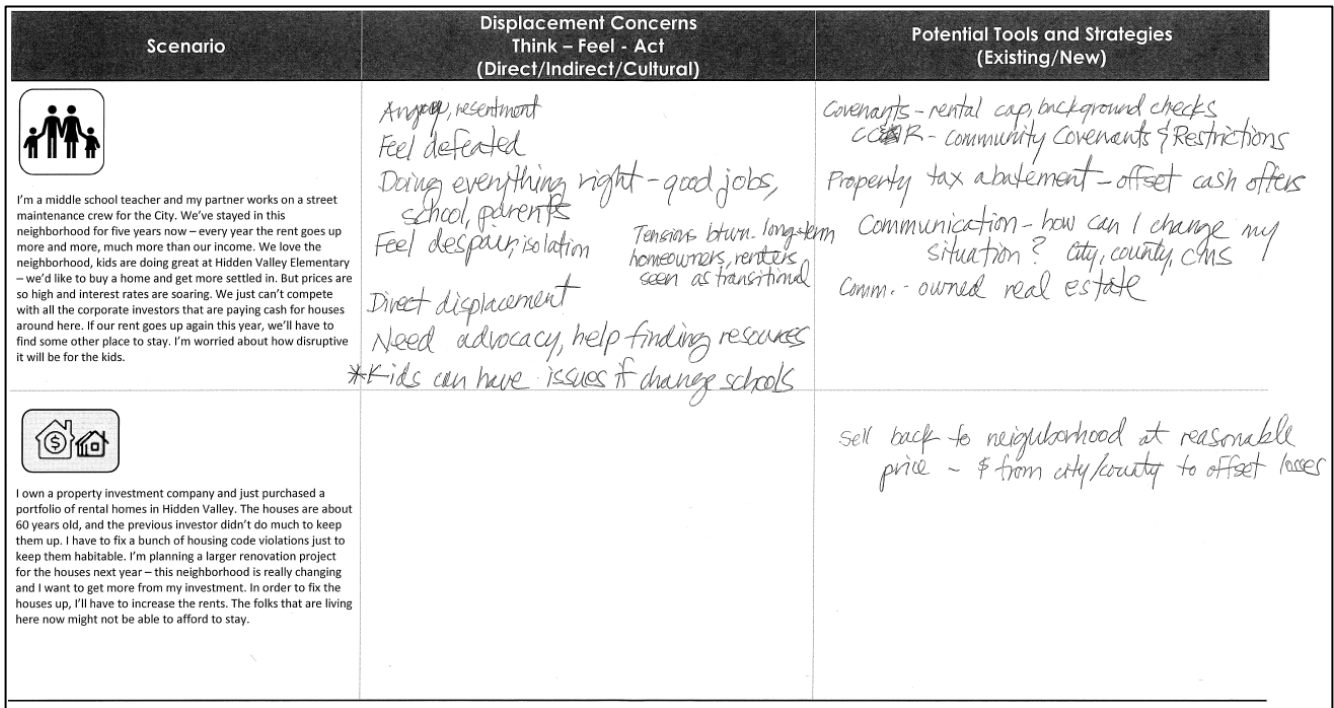 Scenario
Displacement Concerns
Think – Feel - Act
(Direct/Indirect/Cultural)
Potential Tools and Strategies
(Existing/New)
I'm a middle school teacher and my partner works on a street
maintenance crew for the City. We've stayed in this
neighborhood for five years now – every year the rent goes up
more and more, much more than our income. We love the
neighborhood, kids are doing great at Hidden Valley Elementary
– we'd like to buy a home and get more settled in. But prices are
so high and interest rates are soaring. We just can't compete
with all the corporate investors that are paying cash for houses
around here. If our rent goes up again this year, we'll have to
find some other place to stay. I'm worried about how disruptive
it will be for the kids.
resentment
Feel defeated
Doing everything right - good jobs,
school, parents
Feel despair, isolation
Tensions btwn. long-term
homeowners, renters
seen as transitional
Direct displacement
Need advocacy, help finding resources
*Kids can have issues if change schools
Covenants - rental cap, background checks
R - community Covenants & Restrictions
Property tax abatement - offset cash offers
Communication - how can I change my
situation? City, county, CMS
Comm. - owned real estate
$
I own a property investment company and just purchased a
portfolio of rental homes in Hidden Valley. The houses are about
60 years old, and the previous investor didn't do much to keep
them up. I have to fix a bunch of housing code violations just to
keep them habitable. I'm planning a larger renovation project
for the houses next year – this neighborhood is really changing
and I want to get more from my investment. In order to fix the
houses up, I'll have to increase the rents. The folks that are living
here now might not be able to afford to stay.
Sell back to neighborhood at reasonable
price - $ from city/county to offset losses